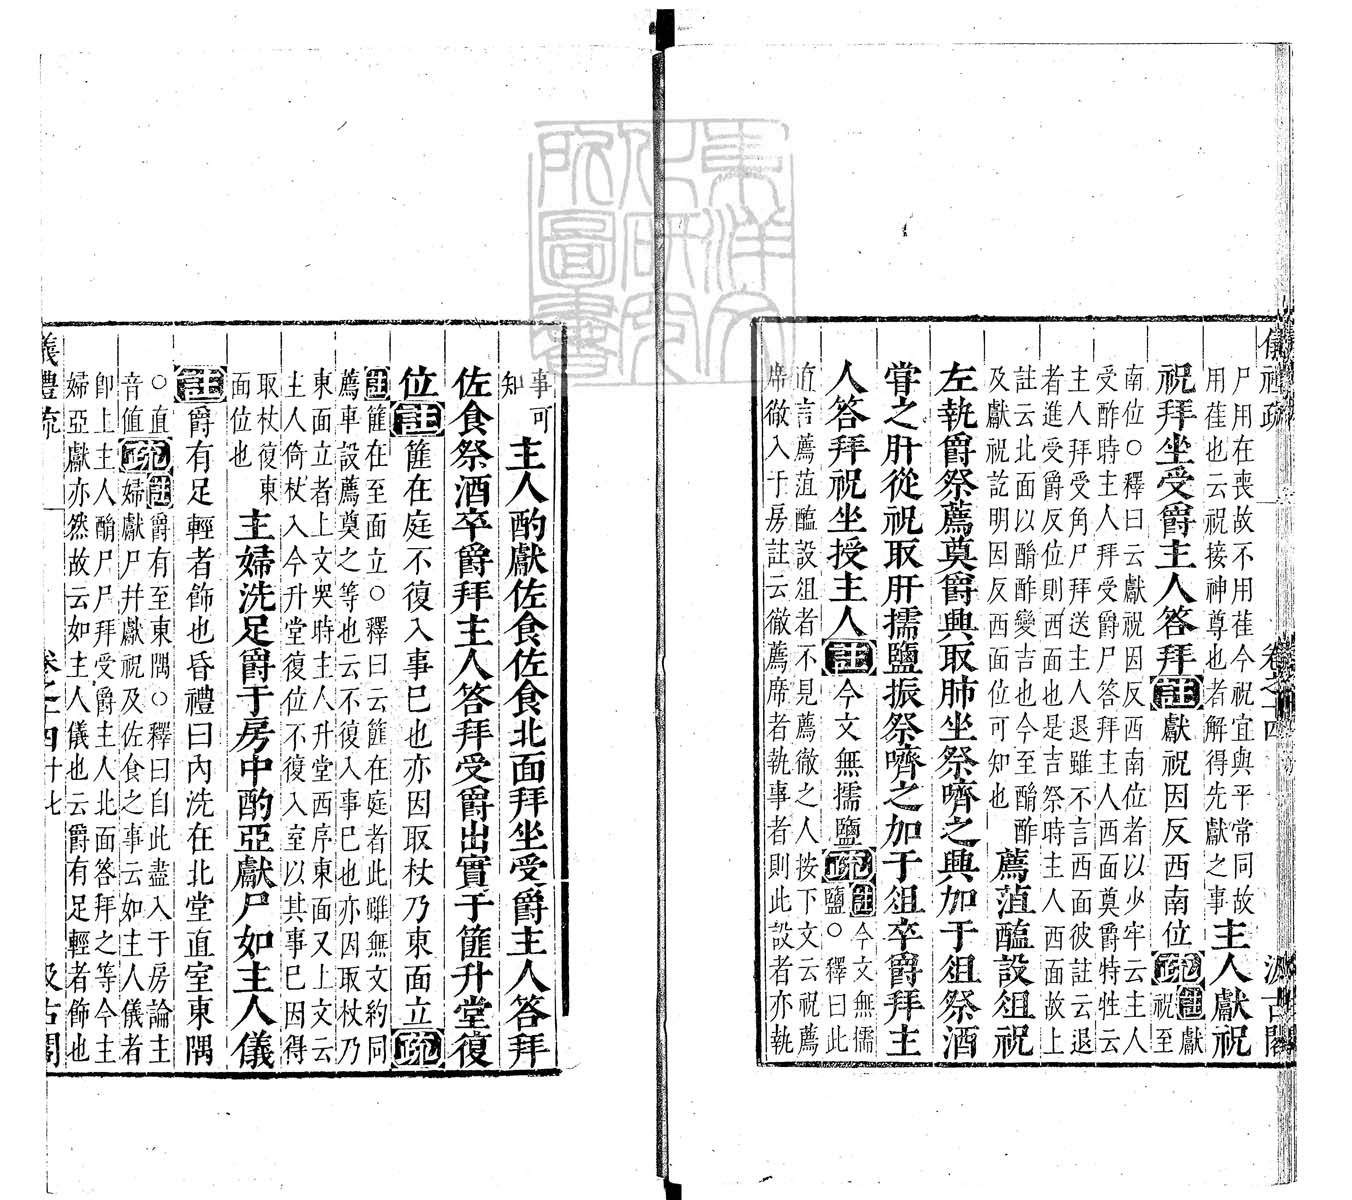 儀禮疏 卷之十四 汲古閣
尸用在喪故不用萑今祝宜與平常同故
用萑也云祝接神尊也者解得先獻之事
主人獻祝
祝拜坐受爵主人答拜
註獻祝因反西南位
疏註獻
祝至
南位○釋曰云獻祝因反西南位者以少牢云主人
受酢時主人拜受爵尸答拜主人西面奠爵特牲云
主人拜受角尸拜送主人退雖不言西面彼註云退
者進受爵反位則西面也是吉祭時主人西面故上
註云北面以酳酢變吉也今至酳酢
及獻祝訖明因反西面位可知也
薦菹醢設俎祝
左執爵祭薦奠爵興取肺坐祭嚌之興加于俎祭酒
嘗之肝從祝取肝擩鹽振祭嚌之加于俎卒爵拜主
人答拜祝坐授主人
註今文無擩鹽
疏註今文無擩
鹽○釋曰此
直言薦菹醢設俎者不見薦徹之人按下文云祝薦
席徹入于房註云徹薦席者執事者則此設者亦執
事可
知
主人酌獻佐食佐食北面拜坐受爵主人答拜
佐食祭酒卒爵拜主人答拜受爵出實于篚升堂復
位註篚在庭不復入事已也亦因取杖乃東面立疏
註篚在至面立○釋曰云篚在庭者此雖無文約同
薦車設薦奠之等也云不復入事已也亦因取杖乃
東面立者上文哭時主人升堂西序東面又上文云
主人倚杖入今升堂復位不復入室以其事已因得
取杖復東
面位也
主婦洗足爵于房中酌亞獻尸如主人儀
註爵有足輕者飾也昏禮曰內洗在北堂直室東隅
○直
音值
疏註爵有至東隅○釋曰自此盡入于房論主
婦獻尸幷獻祝及佐食之事云如主人儀者
卽上主人酳尸尸拜受爵主人北面答拜之等今主
婦亞獻亦然故云如主人儀也云爵有足輕者飾也
儀禮疏 卷之十四 十七 汲古閣
東洋文
化研究
所圖書